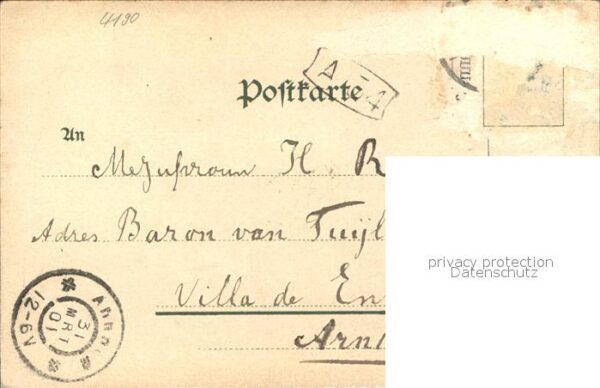 4190
A - 4
Postkarte
An
Mejufvrouw H. R
Adres Baron van Tuijl
Villa de En
Arn
ARNH
31
MRT
01
12-6V
privacy protection
Datenschutz